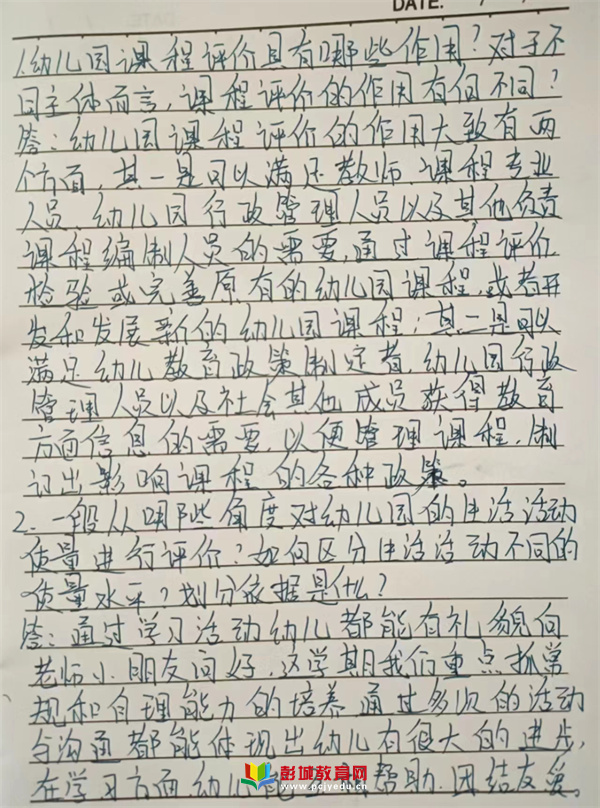 DATE:
1.幼儿园课程评价具有哪些作用？对于不
同主体而言,课程评价的作用有何不同？
答：幼儿园课程评价的作用大致有两
个方面,其一是可以满足教师、课程专业
人员、幼儿园行政管理人员以及其他负责
课程编制人员的需要,通过课程评价
检验或完善原有的幼儿园课程,或者开
发和发展新的幼儿园课程；其二是可以
满足幼儿教育政策制定者、幼儿园行政
管理人员以及社会其他成员获得教育
方面信息的需要,以便管理课程,制
订出影响课程的各种政策。
2.一般从哪些角度对幼儿园的生活活动
质量进行评价？如何区分生活活动不同的
质量水平？划分依据是什么？
答：通过学习活动幼儿都能有礼貌向
老师小朋友问好,这学期我们重点抓常
规和自理能力的培养通过多次的活动
与沟通都能体现出幼儿有很大的进步,
在学习方面幼儿 帮助、团结友爱。
彭城教育网
www.pcjyedu.cn